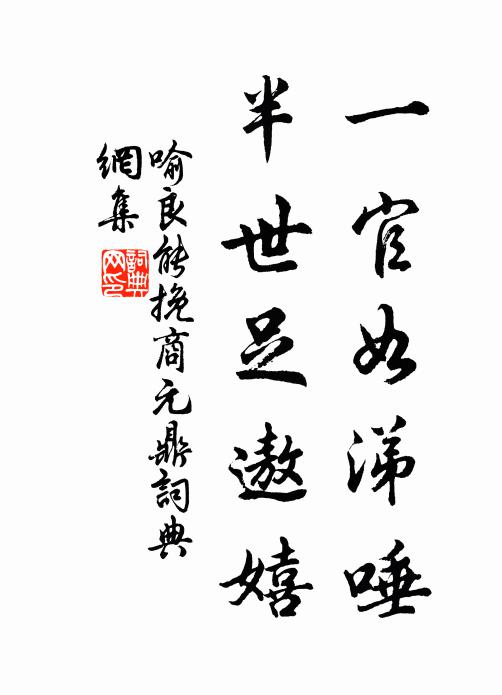 一官如涕唾
半世足遨嬉
喻良能挽商元鼎詞典
網集
詞典
网印